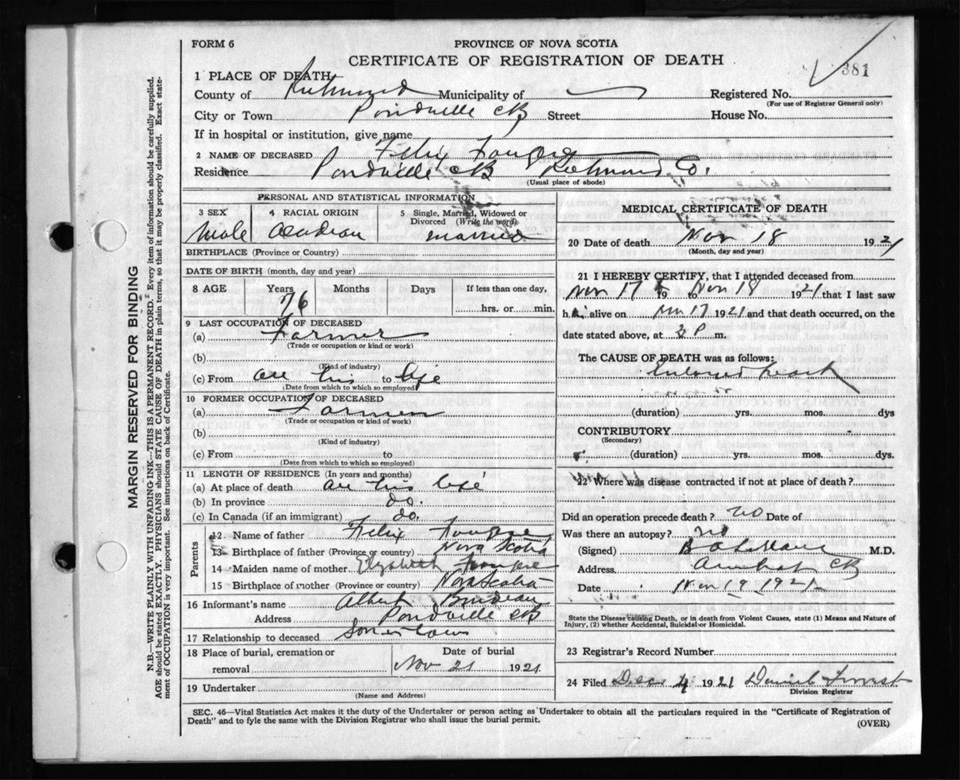 FORM 6
PROVINCE OF NOVA SCOTIA
CERTIFICATE OF REGISTRATION OF DEATH
381
1 PLACE OF DEATH
County of Richmond Municipality of Registered No.
(For use of Registrar General only)
City or Town Pondville CB Street House No.
If in hospital or institution, give name
2 NAME OF DECEASED Felix Fougre
Residence Pondville CB Richmond Co.
(Usual place of abode)
PERSONAL AND STATISTICAL INFORMATION
3 SEX 4 RACIAL ORIGIN 5 Single, Married, Widowed or Divorced (Write the word)
Male Acadian married
BIRTHPLACE (Province or Country)
DATE OF BIRTH (month, day and year)
8 AGE Years Months Days If less than one day,
76 hrs. or min.
9 LAST OCCUPATION OF DECEASED
(a) Farmer
(Trade or occupation or kind or work)
(b)
(Kind of industry)
(c) From all his to life
(Date from which to which so employed)
10 FORMER OCCUPATION OF DECEASED
(a) Farmer
(Trade or occupation or kind of work)
(b)
(Kind of industry)
(c) From to
(Date from which to which so employed)
11 LENGTH OF RESIDENCE (In years and months)
(a) At place of death all his life
(b) In province do.
(c) In Canada (if an immigrant) do.
Parents
12 Name of father Felix Fougre
13 Birthplace of father (Province or country) Nova Scotia
14 Maiden name of mother Elizabeth
15 Birthplace of mother (Province or country) Nova Scotia
16 Informant's name Albert
Address Pondville CB
17 Relationship to deceased Son in law
18 Place of burial, cremation or removal Date of burial
Nov 21 1921
19 Undertaker
(Name and Address)
MEDICAL CERTIFICATE OF DEATH
20 Date of death Nov 18 1921
(Month, day and year)
21 I HEREBY CERTIFY, that I attended deceased from
Nov 17 to Nov 18 1921 that I last saw
h alive on Nov 17 1921 and that death occurred, on the
date stated above, at P m.
The CAUSE OF DEATH was as follows:
heart
(duration) yrs. mos. dys
CONTRIBUTORY
(Secondary)
(duration) yrs. mos. dys.
22 Where was disease contracted if not at place of death?
Did an operation precede death? no Date of
Was there an autopsy? no
(Signed) M.D.
Address Arichat CB
Date Nov 19 1921
State the Disease causing Death, or in death from Violent Causes, state (1) Means and Nature of Injury, (2) whether Accidental, Suicidal or Homicidal.
23 Registrar's Record Number
24 Filed Dec 4 1921 Daniel
Division Registrar
SEC. 46—Vital Statistics Act makes it the duty of the Undertaker or person acting as Undertaker to obtain all the particulars required in the "Certificate of Registration of
Death" and to fyle the same with the Division Registrar who shall issue the burial permit.
(OVER)
MARGIN RESERVED FOR BINDING
N.B.—WRITE PLAINLY WITH UNFADING INK—THIS IS A PERMANENT RECORD. Every item of information should be carefully supplied.
AGE should be stated EXACTLY. PHYSICIANS should STATE CAUSE OF DEATH in plain terms, so that it may be properly classified. Exact state-
ment of OCCUPATION is very important. See instructions on back of Certificate.